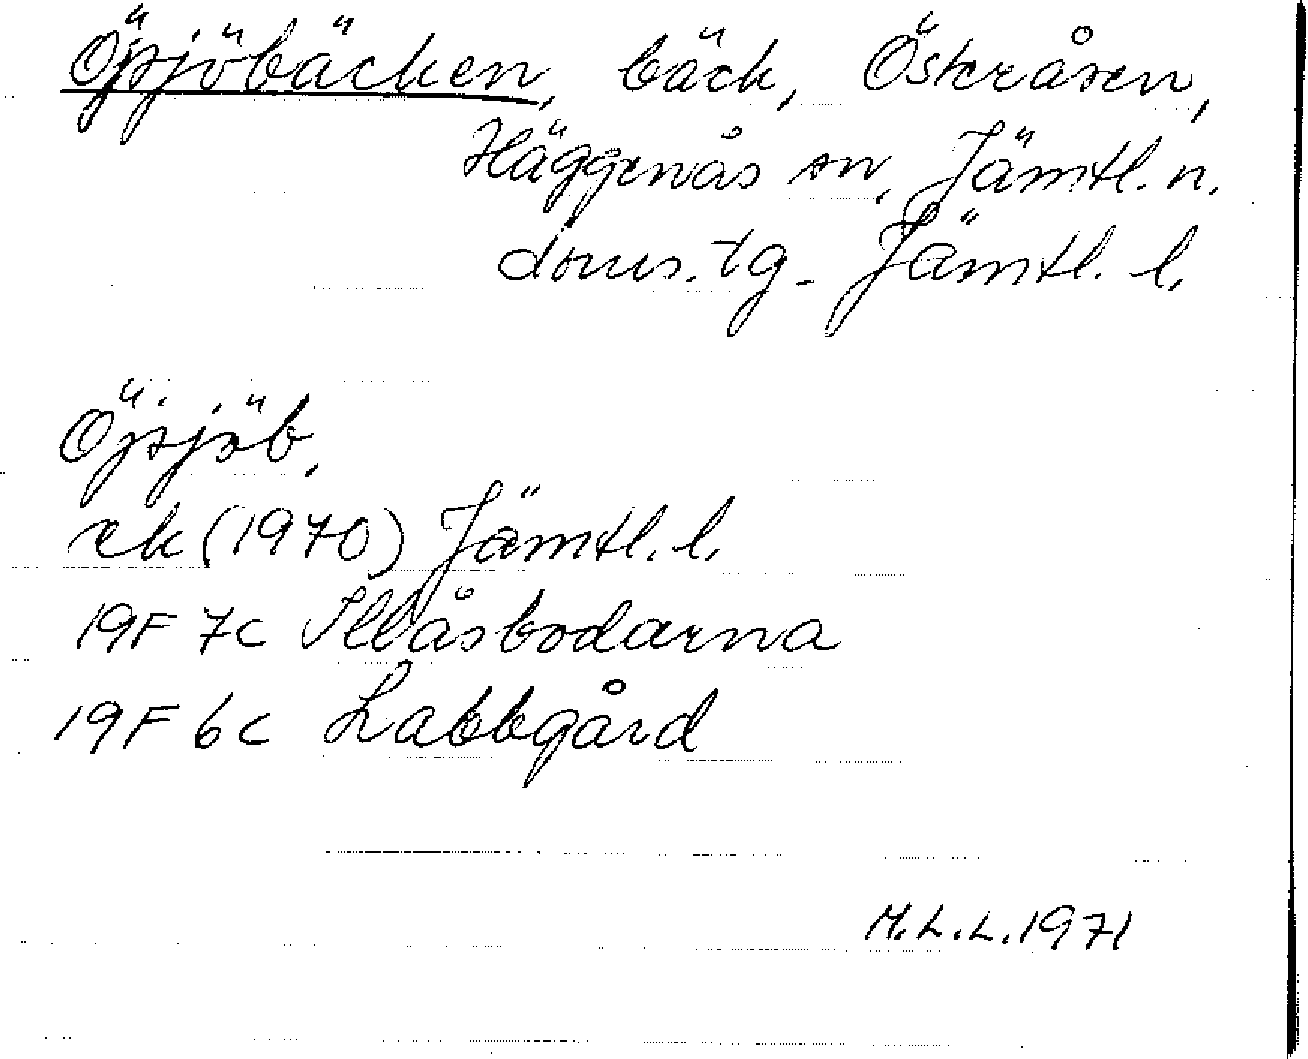 Öjsjöbäcken, bäck, Österåsen,
Häggenås sn, Jämtl. n.
doms. tg. Jämtl. l.
Öjsjöb.
ek (1970) Jämtl. l.
19F 7c Illåsbodarna
19F 6c Labbgård
M.L.L. 1971